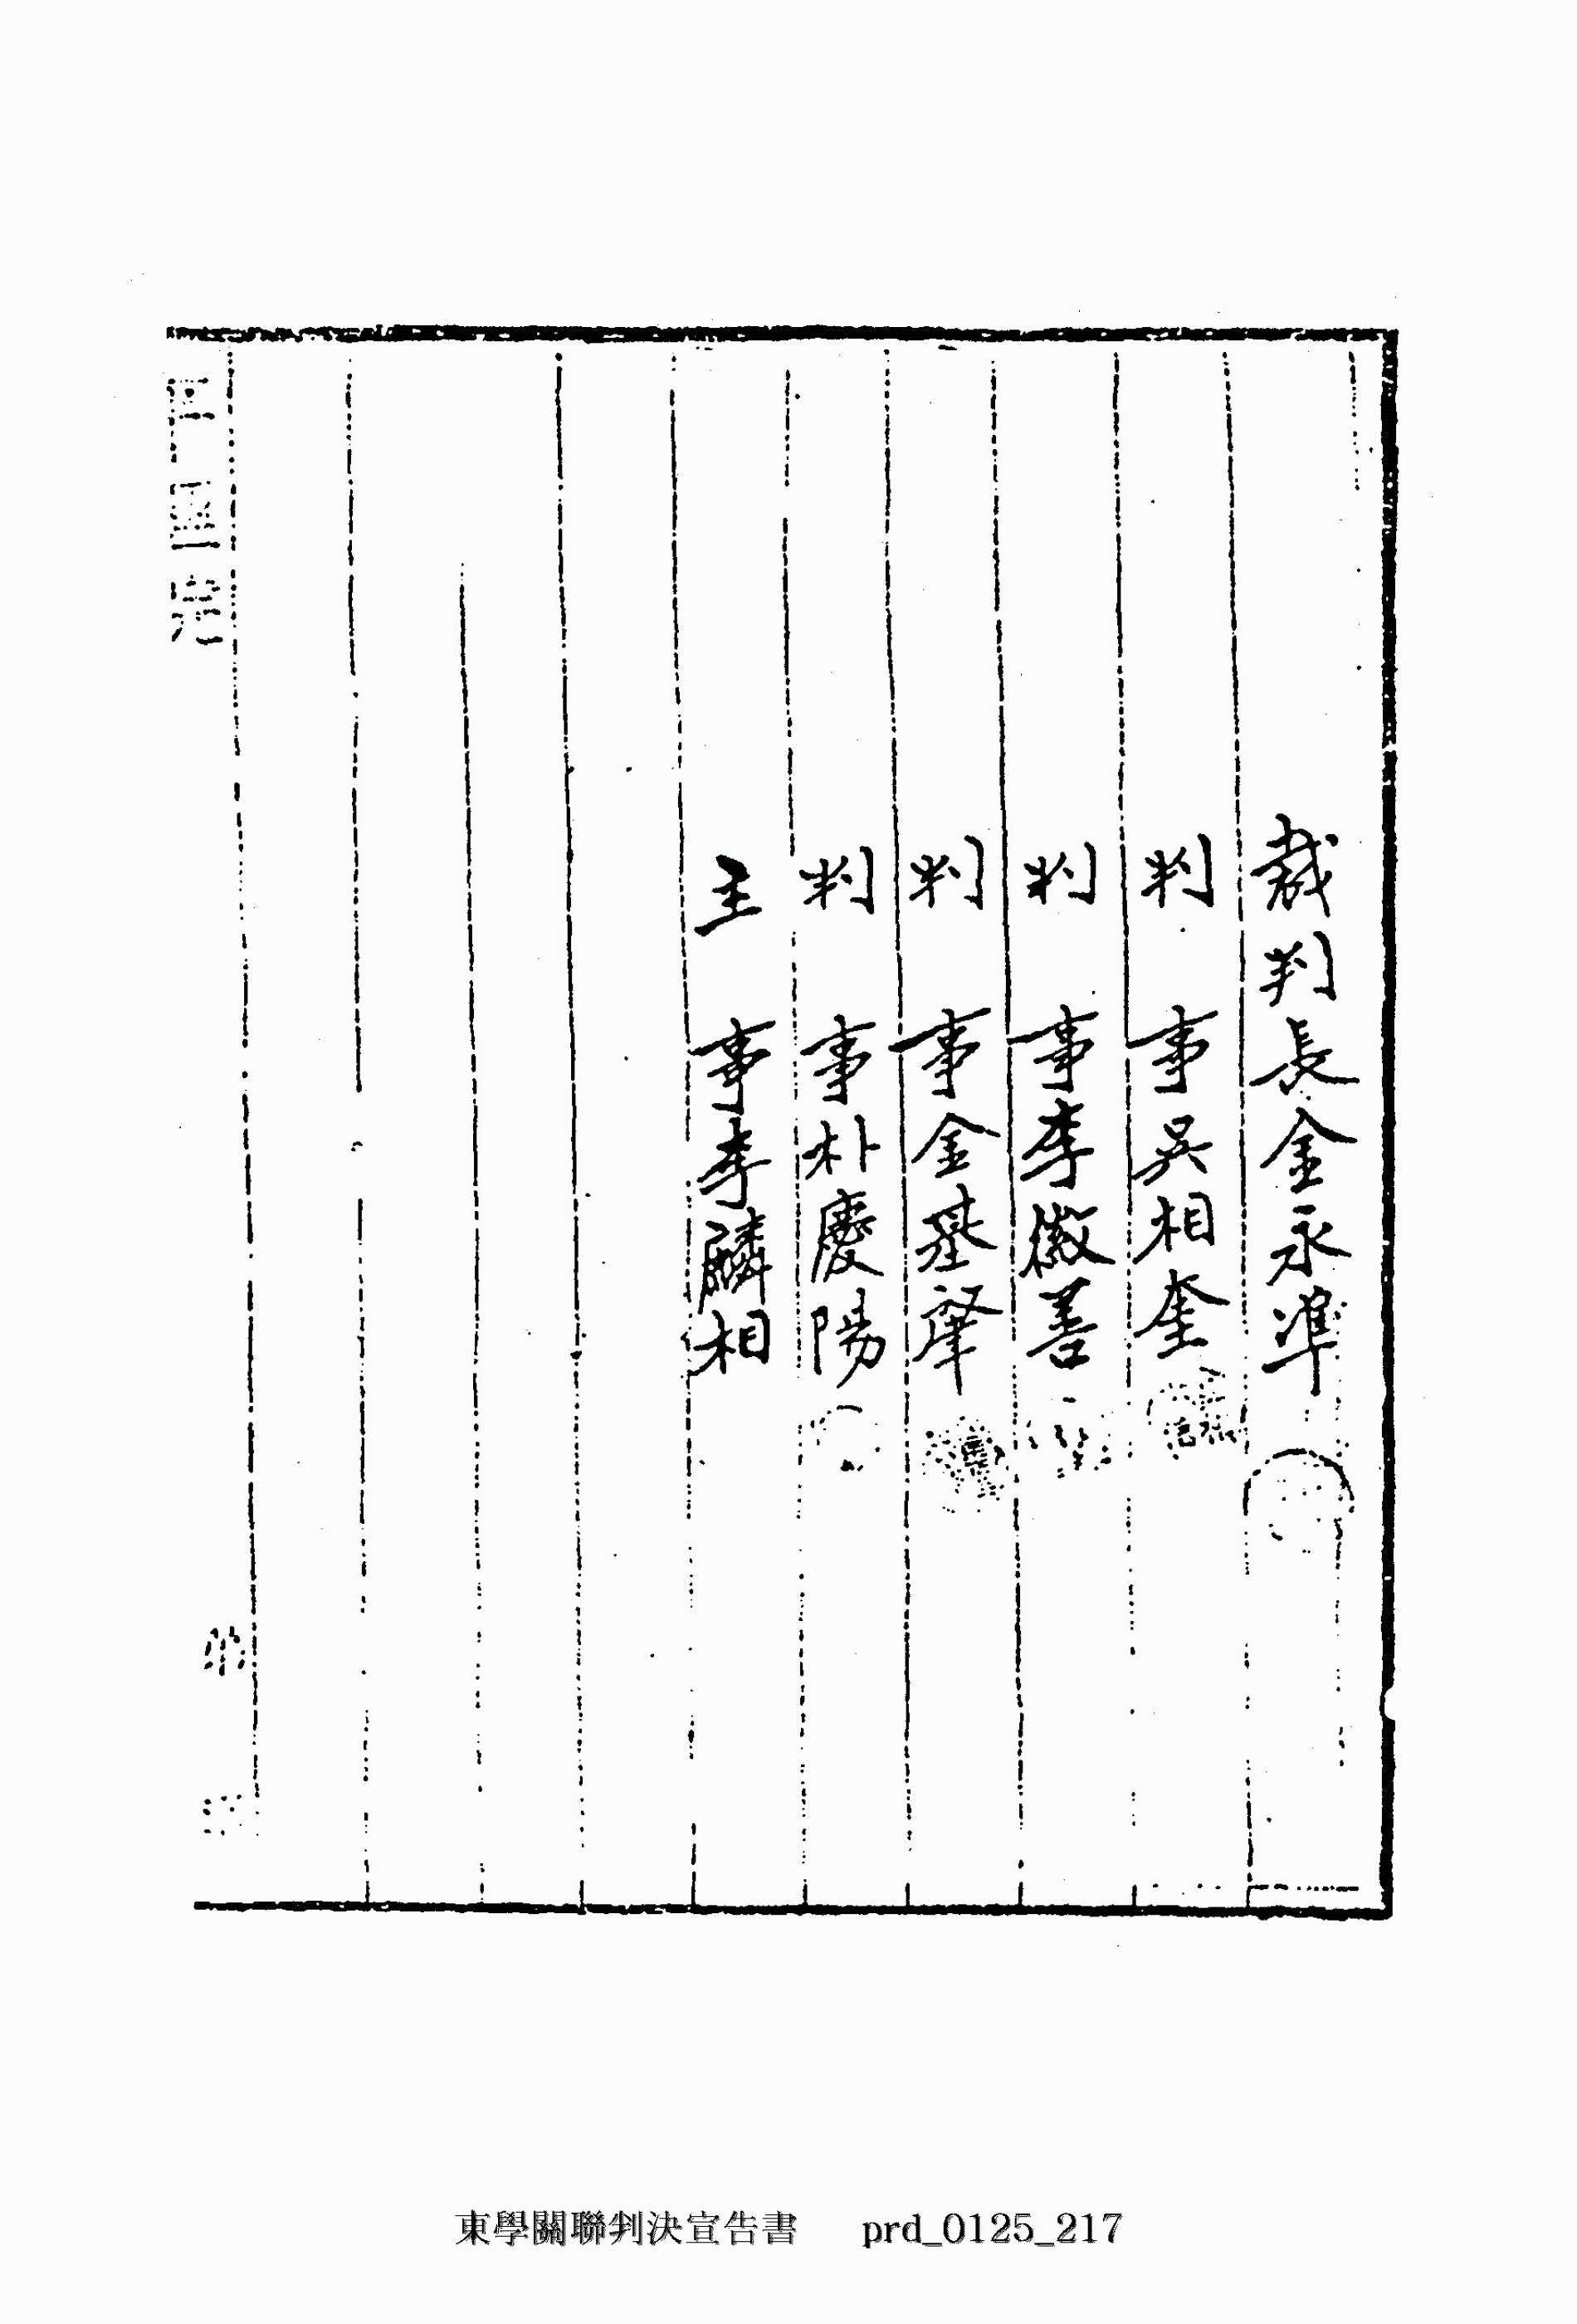 裁判長金永準
判事吳相奎
判事李徽善
判事金基肇
判事朴慶陽
主事李麟相
東學關聯判決宣告書 prd_0125_217